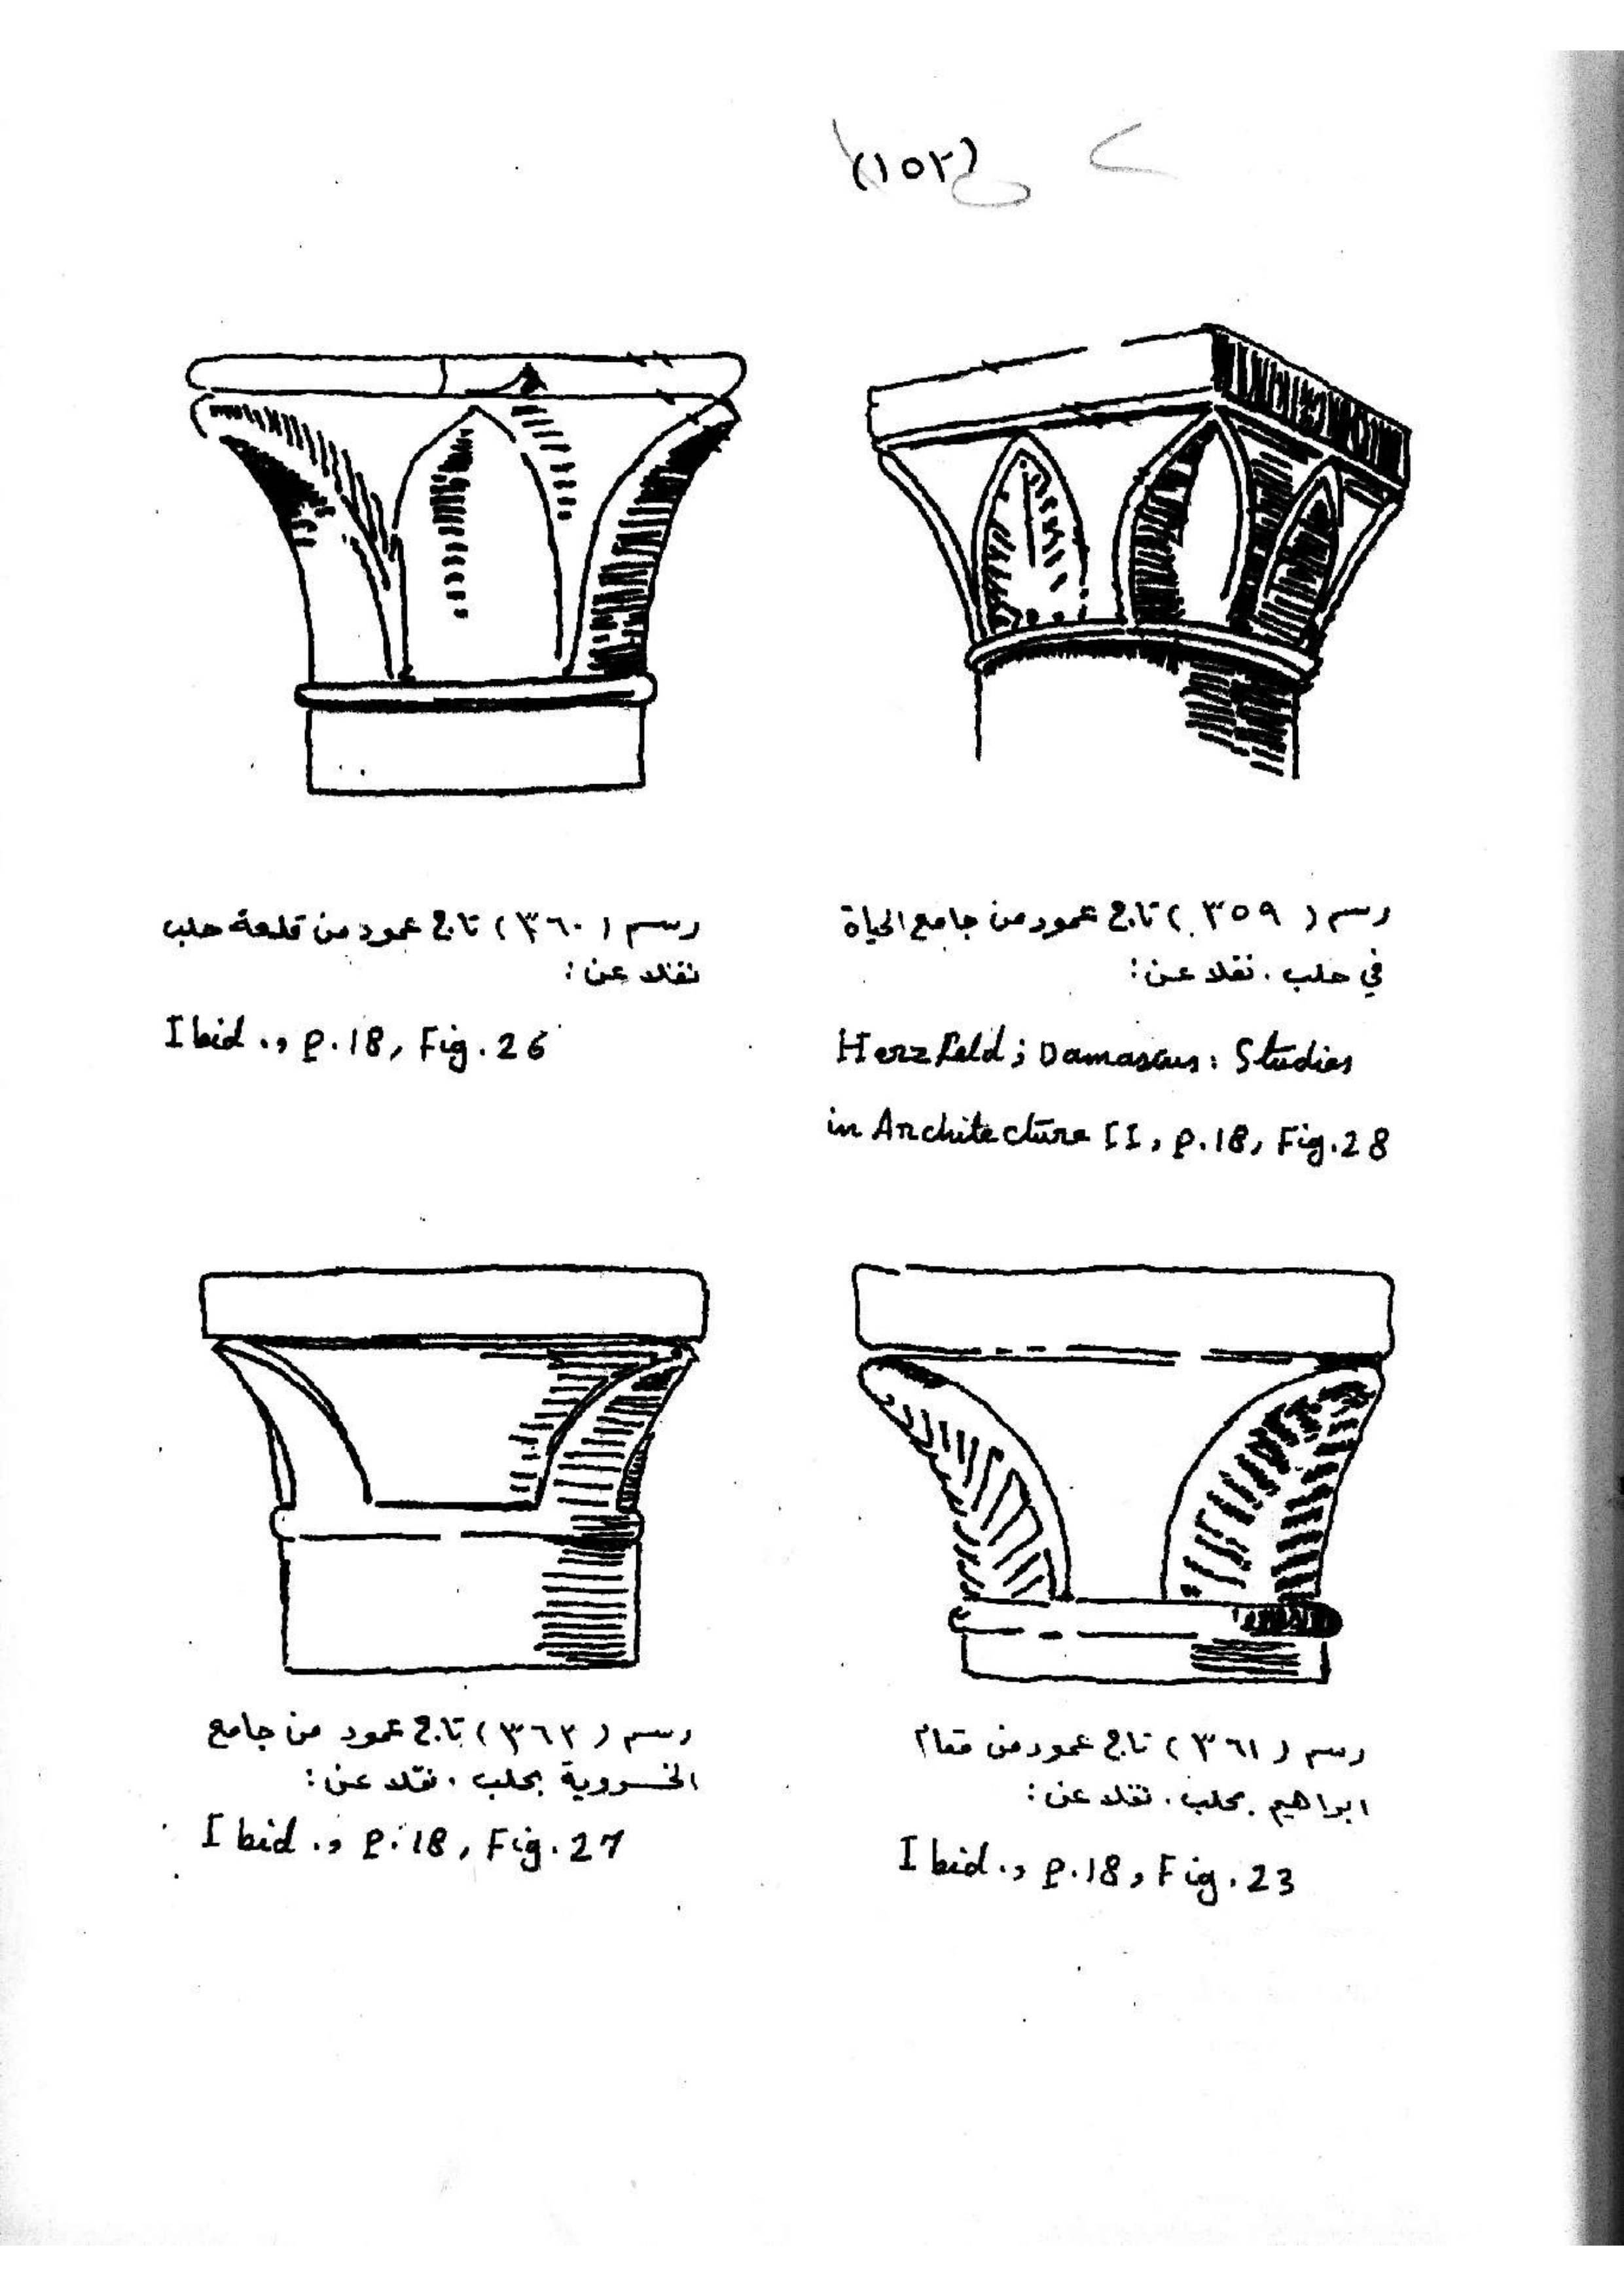 (١٥٢)
رسم (٣٥٩) تاج عمود من جامع الحياة
في حلب . نقلا عن :
Herzfeld; Damascus: Studies
in Architecture II, p.18, Fig.28
رسم (٣٦٠) تاج عمود من قلعة حلب
نقلا عن :
Ibid ., p.18, Fig.26
رسم (٣٦١) تاج عمود من مقام
ابراهيم بحلب . نقلا عن :
Ibid ., p.18, Fig.23
رسم (٣٦٢) تاج عمود من جامع
الخسروية بحلب . نقلا عن :
Ibid ., p.18, Fig.27